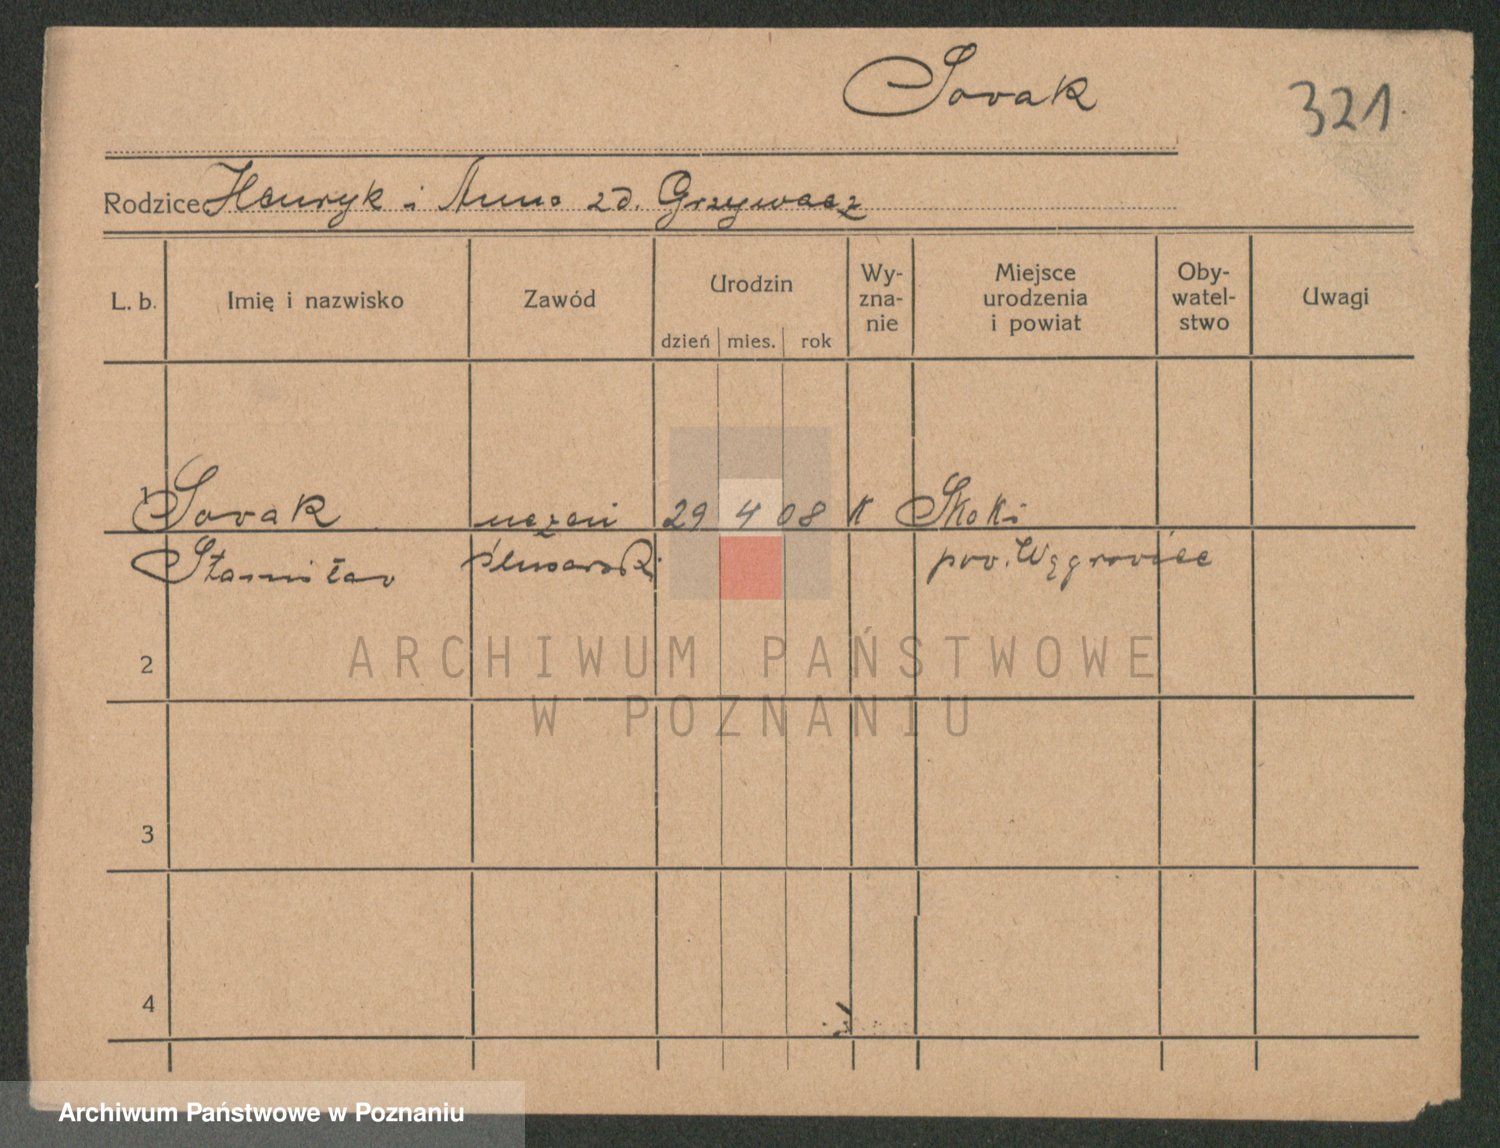 Sovak
321.
Rodzice: Henryk i Anna zd. Grzywacz
L. b.
Imię i nazwisko
Zawód
Urodzin
dzień mies. rok
Wy-
zna-
nie
Miejsce
urodzenia
i powiat
Oby-
watel-
stwo
Uwagi
1 Sovak uczeń 29 4 08 K Skoki
Stanisław ślusarski pow. Wągrowiec
2
3
4
ARCHIWUM PAŃSTWOWE
W POZNANIU
Archiwum Państwowe w Poznaniu